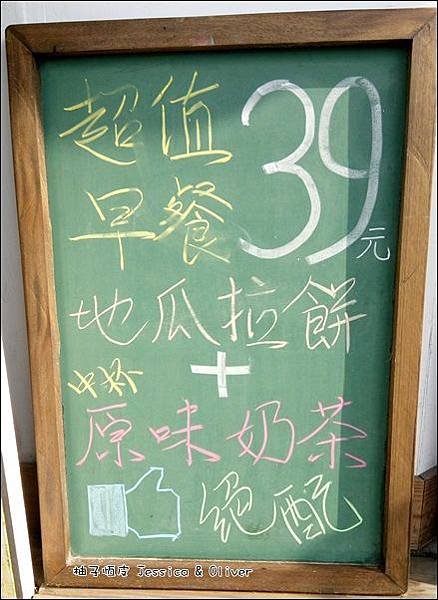 超值
早餐
39元
地瓜拉餅
+
中杯
原味奶茶
絕配
柚子順皮 Jessica & Oliver